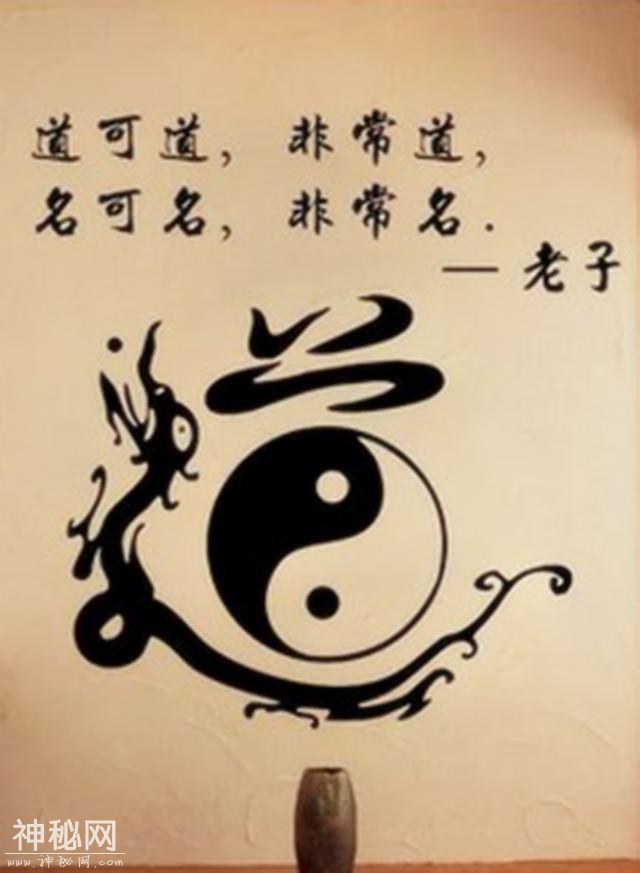 道可道，非常道，
名可名，非常名.
— 老子
道
神秘网
www.神秘网.com